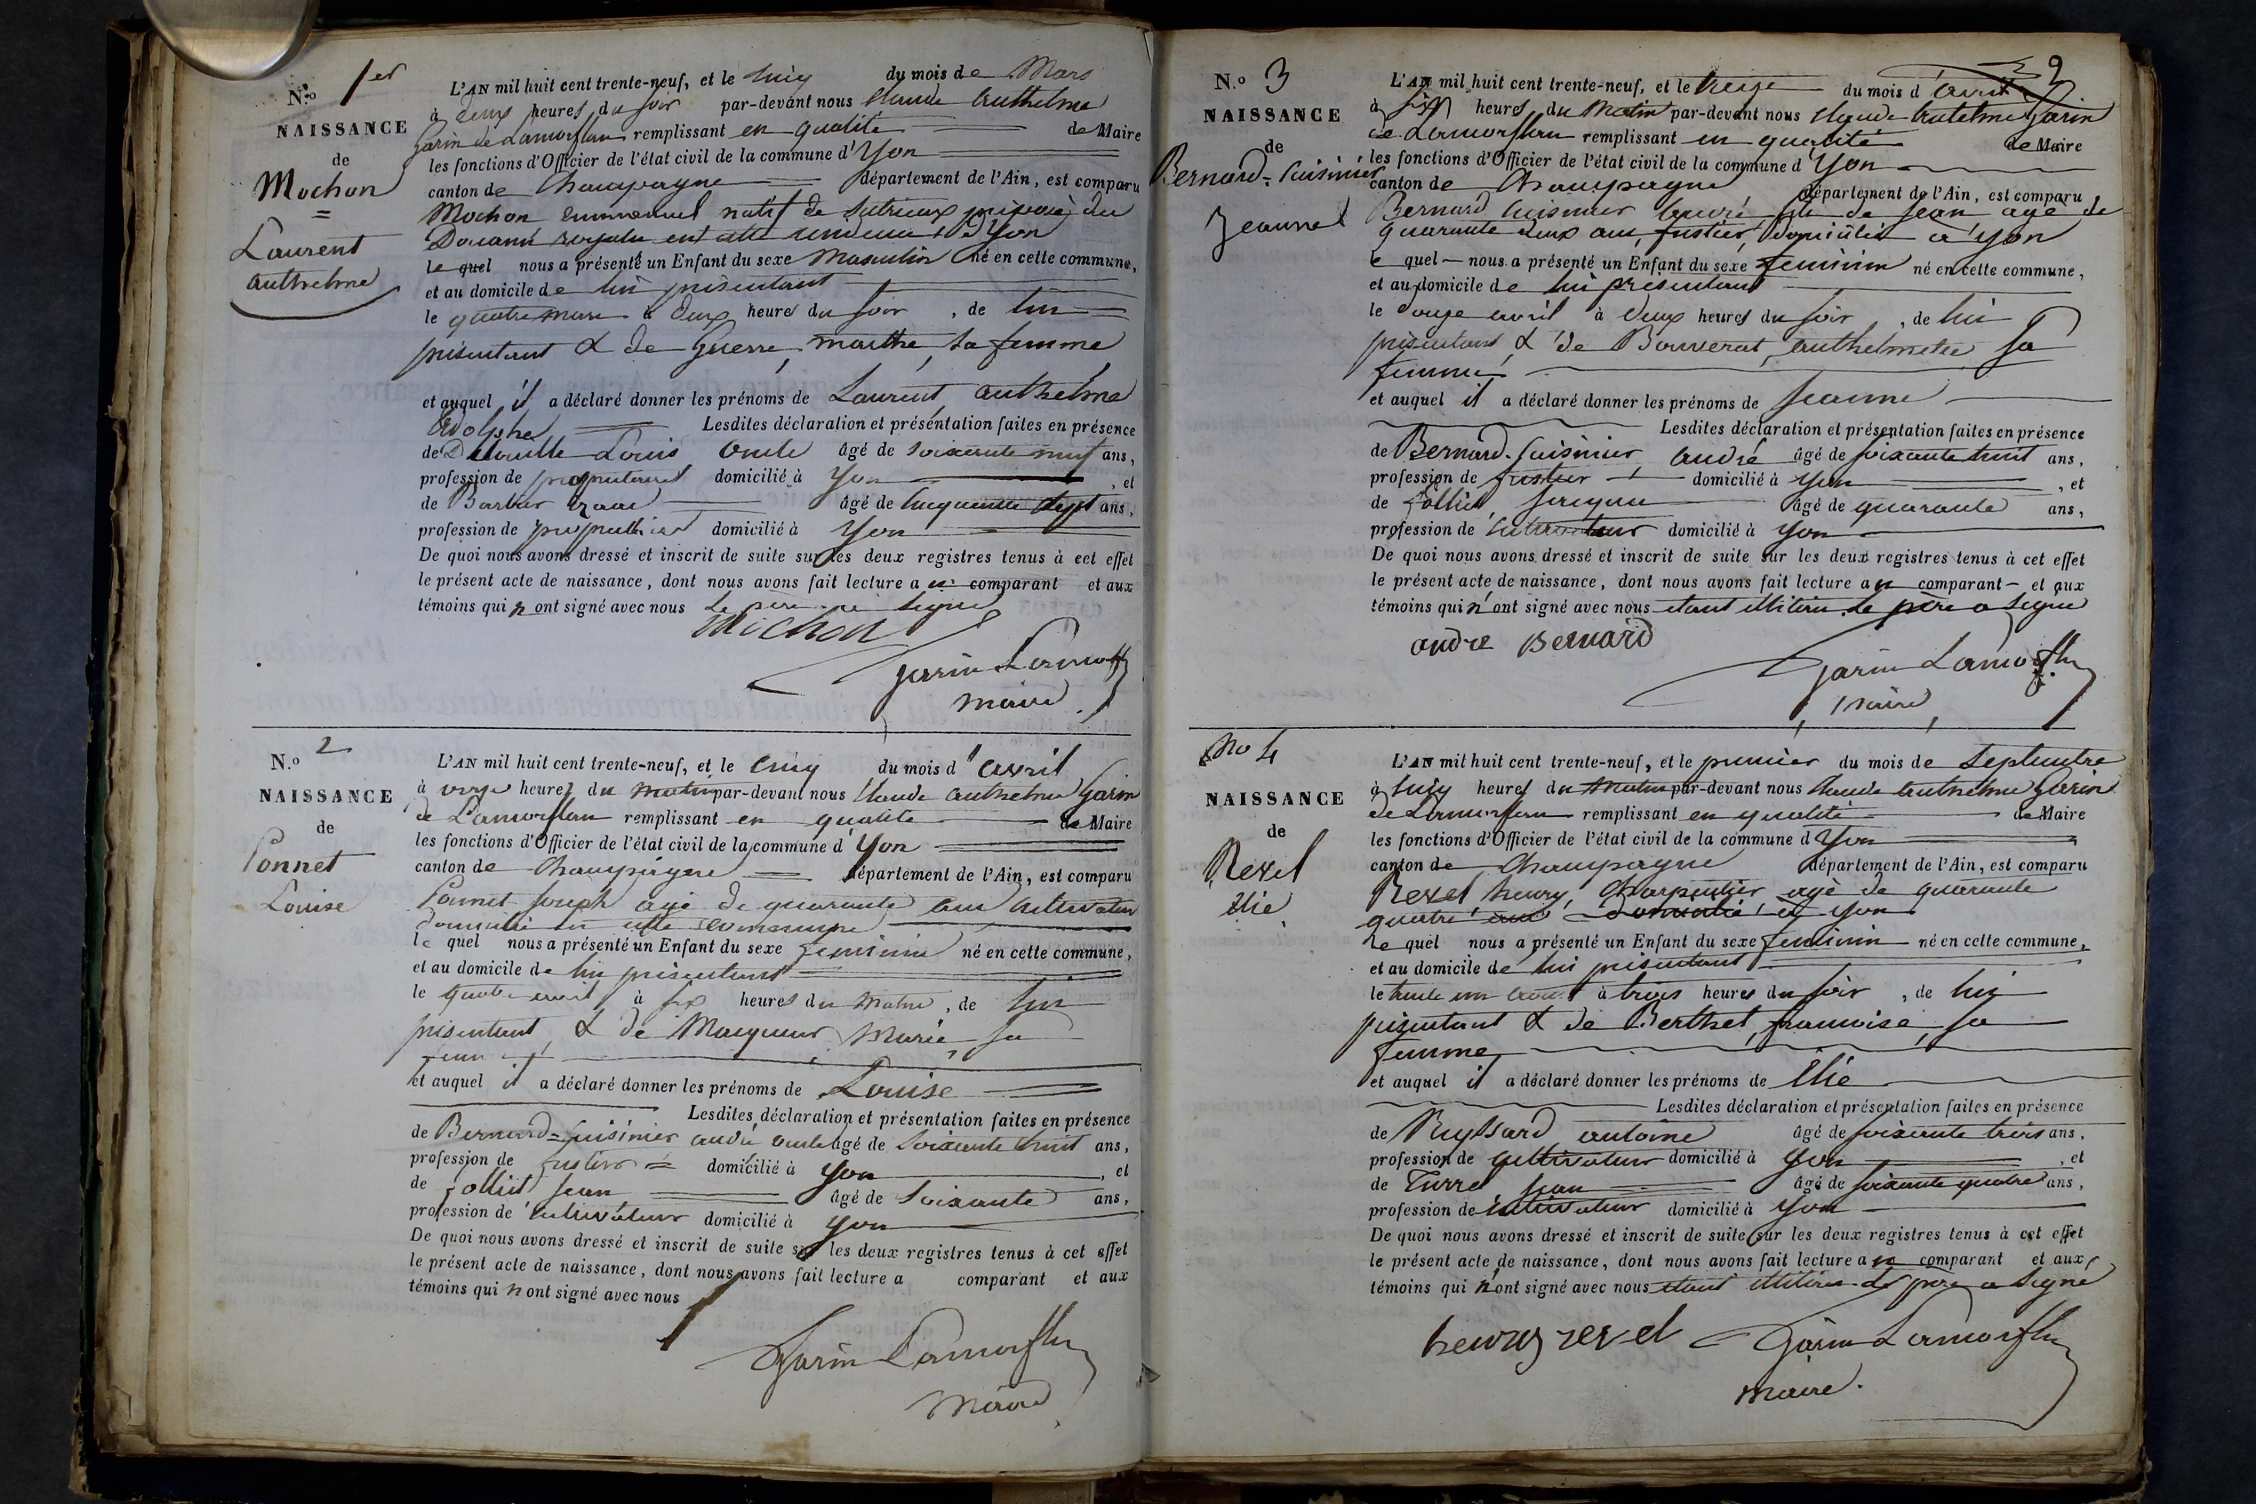 N.o 1er
NAISSANCE
de
Mochon
Laurent
Anthelme
L'AN mil huit cent trente-neuf, et le cinq du mois de Mars
à deux heures du soir par-devant nous Claude Anthelme
Garin de Lamorflan remplissant en qualité de Maire
les fonctions d'Officier de l'état civil de la commune d'Yon
canton de Champagne département de l'Ain, est comparu
Mochon emmanuel natif de préposé du
Douanne royale en cette à Yon
le quel nous a présenté un Enfant du sexe Masculin né en cette commune,
et au domicile de lui présentant
le quatre mars à deux heures du soir, de lui
présentant & de Guerre, marthe, sa femme
et auquel il a déclaré donner les prénoms de Laurent, anthelme
Adolphe Lesdites déclaration et présentation faites en présence
de Louis oncle âgé de soixante neuf ans,
profession de propriétaire domicilié à Yon, et
de Barbier âgé de cinquante sept ans,
profession de propriétaire domicilié à Yon
De quoi nous avons dressé et inscrit de suite sur les deux registres tenus à cet effet
le présent acte de naissance, dont nous avons fait lecture au comparant et aux
témoins qui n ont signé avec nous le père a signé
Mochon
Garin Lamorfl
maire
N.o 2
NAISSANCE
de
Ponnet
Louise
L'AN mil huit cent trente-neuf, et le cinq du mois d'avril
à onze heures du matin par-devant nous Claude anthelme Garin
de Lamorflan remplissant en qualité de Maire
les fonctions d'Officier de l'état civil de la commune d Yon
canton de Champagne département de l'Ain, est comparu
Ponnet Joseph agé de quarante ans cultivateur
domicilié en cette commune
le quel nous a présenté un Enfant du sexe feminin né en cette commune,
et au domicile de lui présentant
le quatre avril à six heures du matin, de lui
présentant & de Marie sa
femme
et auquel il a déclaré donner les prénoms de Louise
Lesdites déclaration et présentation faites en présence
de Bernard=Cuisinier andré oncle âgé de soixante huit ans,
profession de fustier domicilié à Yon, et
de follict Jean âgé de soixante ans,
profession de cultivateur domicilié à Yon
De quoi nous avons dressé et inscrit de suite sur les deux registres tenus à cet effet
le présent acte de naissance, dont nous avons fait lecture a comparant et aux
témoins qui n ont signé avec nous
Garin Lamorfl
Maire
2
N.o 3
NAISSANCE
de
Bernard=Cuisinier
Jeanne
L'AN mil huit cent trente-neuf, et le treize du mois d'avril
à six heures du Matin par-devant nous Claude Antelme Garin
de Lamorflan remplissant en qualité de Maire
les fonctions d'Officier de l'état civil de la commune d Yon
canton de Champagne département de l'Ain, est comparu
Bernard Cuisinier André fils de Jean agé de
quarante deux ans, fustier, domicilié à Yon
le quel nous a présenté un Enfant du sexe feminin né en cette commune,
et au domicile de lui présentant
le douze avril à deux heures du soir, de lui
présentant & de Bouverat, anthelmette sa
femme
et auquel il a déclaré donner les prénoms de Jeanne
Lesdites déclaration et présentation faites en présence
de Bernard-Cuisinier André âgé de soixante huit ans,
profession de fustier domicilié à Yon, et
de follict, Jacques âgé de quarante ans,
profession de cultivateur domicilié à Yon
De quoi nous avons dressé et inscrit de suite sur les deux registres tenus à cet effet
le présent acte de naissance, dont nous avons fait lecture au comparant et aux
témoins qui n'ont signé avec nous étant illitérés le père a signé
andre Bernard
Garin Lamorfl
Maire
No 4
NAISSANCE
de
Revel
Elie
L'AN mil huit cent trente-neuf, et le premier du mois de Septembre
à cinq heures du Matin par-devant nous Claude Anthelme Garin
de Lamorflan remplissant en qualité de Maire
les fonctions d'Officier de l'état civil de la commune d Yon
canton de Champagne département de l'Ain, est comparu
Revel henry, Charpentier agé de quarante
quatre ans domicilié à Yon
le quel nous a présenté un Enfant du sexe feminin né en cette commune,
et au domicile de lui présentant
le trente un août à trois heures du soir, de lui
présentant & de Berthet, francoise, sa
femme,
et auquel il a déclaré donner les prénoms de Elie
Lesdites déclaration et présentation faites en présence
de Ruffard antoine âgé de soixante trois ans,
profession de cultivateur domicilié à Yon, et
de Turrel Jean âgé de soixante quatre ans,
profession de cultivateur domicilié à Yon
De quoi nous avons dressé et inscrit de suite sur les deux registres tenus à cet effet
le présent acte de naissance, dont nous avons fait lecture au comparant et aux
témoins qui n'ont signé avec nous étant illitérés le père a signé
henry revel
Garin Lamorfl
Maire.